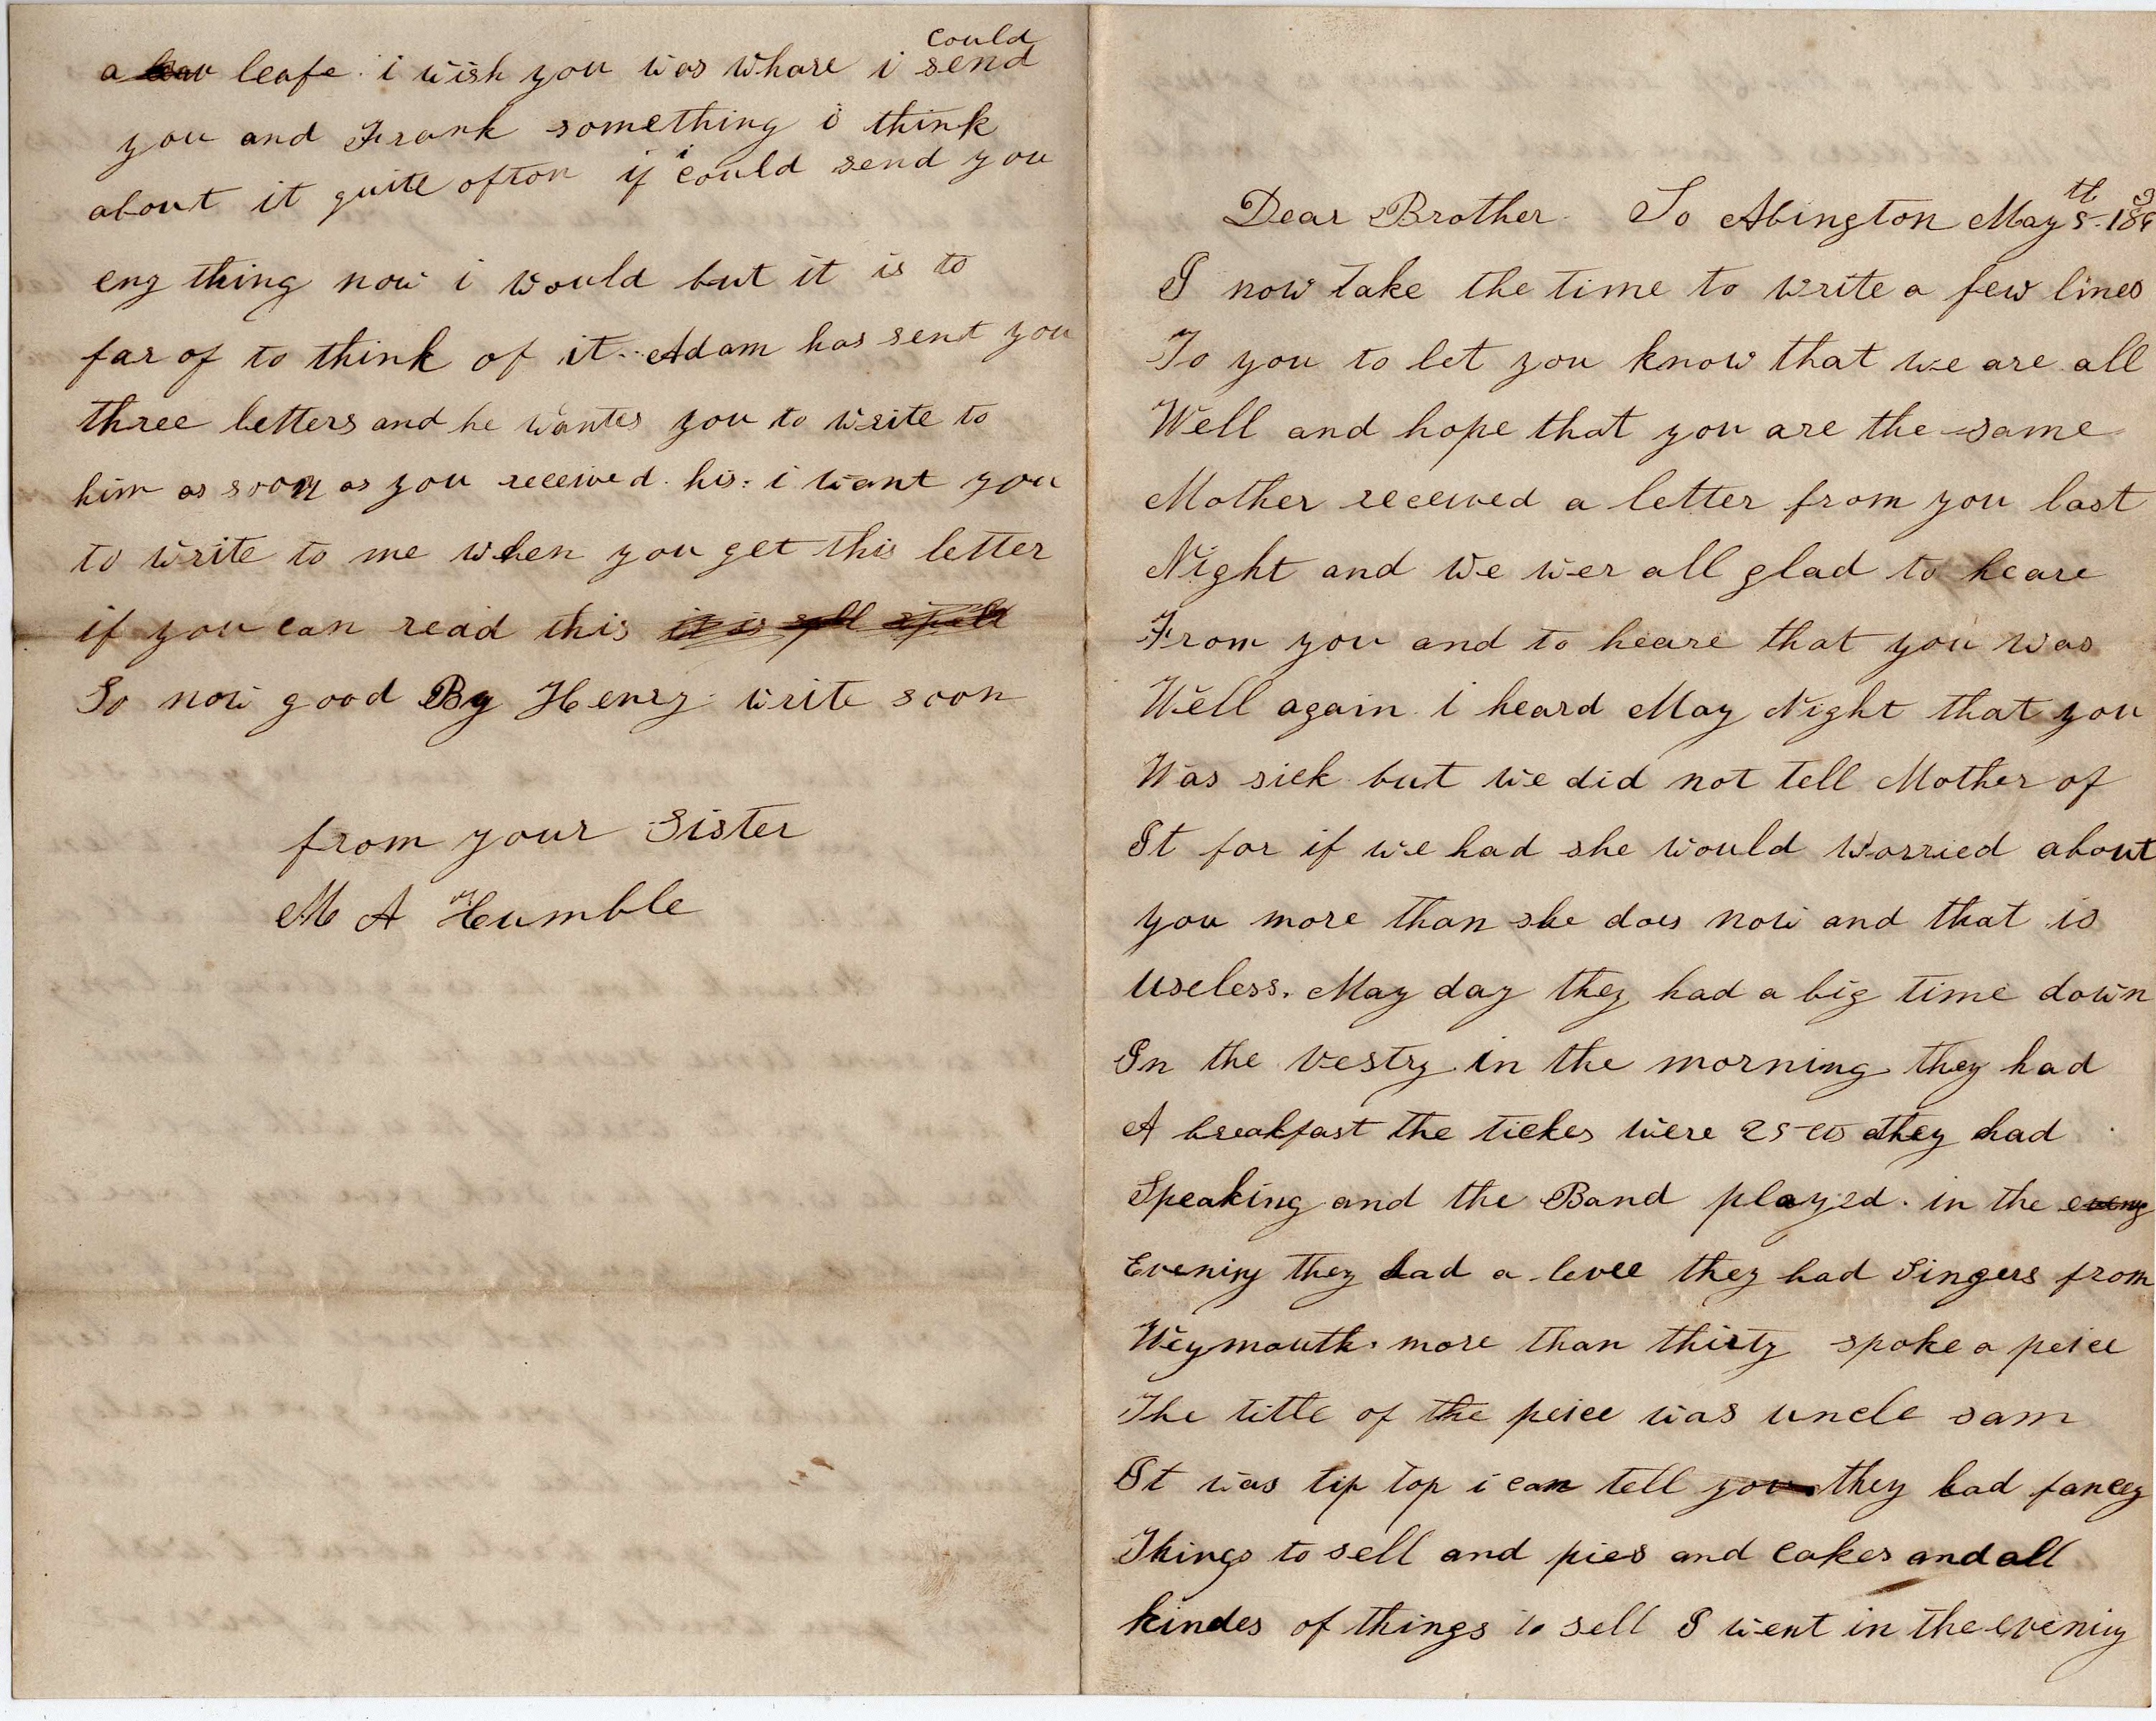 Dear Brother So Abington May 5th 186
I now take the time to write a few lines
To you to let you know that we are all
Well and hope that you are the same
Mother received a letter from you last
Night and we wer all glad to heare
From you and to heare that you was
Well again i heard May Night that you
Was sick but we did not tell Mother of
It for if we had she would worried about
you more than she does now and that is
useless. May day they had a big time down
In the vestry in the morning they had
A breakfast the tickes were 25 cts they had
Speaking and the Band played. in the
Evening they had a levee they had Singers from
Weymouth. more than thirty spoke a peice
The title of the peice was uncle sam
It was tip top i can tell you they had fancy
Things to sell and pies and cakes and all
kindes of things to sell I went in the evening
a leafe. i wish you was whare i could send
you and Frank something i think
about it quite ofton if i could send you
eny thing now i would but it is to
far of to think of it.. Adam has sent you
three letters and he wantes you to write to
him as soon as you received his: i want you
to write to me when you get this letter
if you can read this it is spell
So now good By Henry write soon
from your Sister
M A Humble